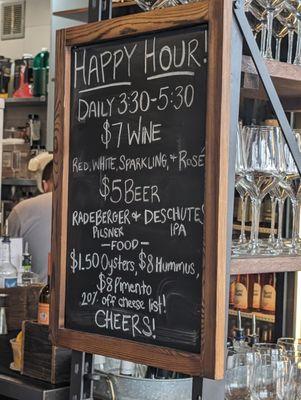 HAPPY HOUR!
DAILY 3:30-5:30
$7 WINE
RED, WHITE, SPARKLING, & ROSÉ
$5 BEER
RADEBERGER & DESCHUTES
PILSNER IPA
-FOOD-
$1.50 OYSTERS, $8 HUMMUS,
$8 PIMENTO
20% OFF CHEESE LIST!
CHEERS!